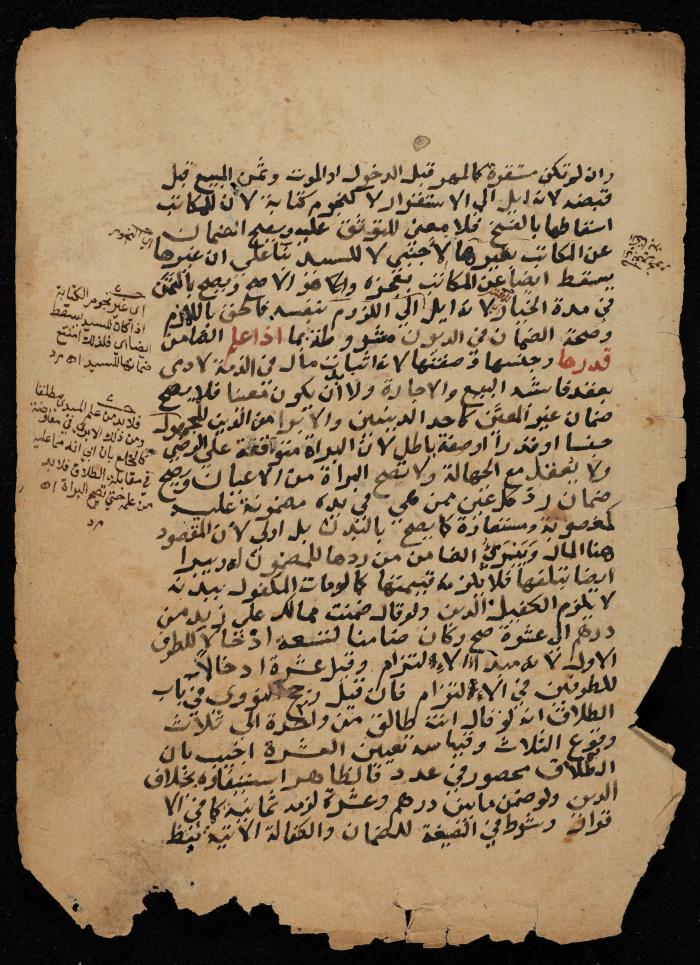 وان لم تكن مستقرة كالمهر قبل الدخول او الموت وثمن المبيع قبل
قبضه لانه ايل الى الاستقرار لا كنجوم كتابة لان للمكاتب
اسقاطها بالفسخ فلا معنى للتوثق عليه ويصح الضمان
عن المكاتب بغيرها لاجنبي لا للسيد بناء على ان غيرها
يسقط ايضا عن المكاتب بعجزه وهو الاصح ويصح بالثمن
في مدة الخيار لانه ايل الى اللزوم بنفسه فالحق باللازم
وصحة الضمان في الديون مشروطة بما اذا علم الضامن
قدرها وجنسها وصفتها لانه اثبات مال في الذمة لادمي
بعقد فاشبه البيع والاجارة ولا ان يكون معينا فلا يصح
ضمان غير المعين كاحد الدينين والابرا من الدين المجهول
جنسا او قدرا او صفة باطل لان البراة متوقفة على الرضى
ولا يعقل مع الجهالة ولا تصح البراة من الاعيان ويصح
ضمان رد كل عين ممن هي في يده مضمونة عليه
كمغصوبة ومستعارة كما يصح بالبدن بل اولى لان المقصود
هنا المال ويبرى الضامن من ردها للمضمون له ويبرا
ايضا بتلفها فلا يلزمه قيمتها كما لو مات المكفول ببدنه
لا يلزم الكفيل الدين ولو قال ضمنت مما لك على زيد من
درهم الى عشرة صح وكان ضامنا لتسعة ادخالا للطرف
الاول لانه مبدا الالتزام وقيل عشرة ادخالا
للطرفين في الالتزام فان قيل رجح النووي في باب
الطلاق انه لو قال انت طالق من واحدة الى ثلاث
وقوع الثلاث وقياسه تعيين العشرة اجيب بان
الطلاق محصور في عدد فالظاهر استيفاؤه بخلاف
الدين ولو ضمن ما بين درهم وعشرة لزمه ثمانية كما في الا
قرار وشرط في الصيغة للضمان والكفالة الاتية لفظ
اي غير نجوم الكتابة
اذا كان للسيد يسقط
ايضا اي فلذلك امتنع
ضمانها للسيد اه م د
فلا بد من علم المبري مطلقا
في مقابلة الطلاق فلا بد
من علمه حتى تصح البراة اه
م د